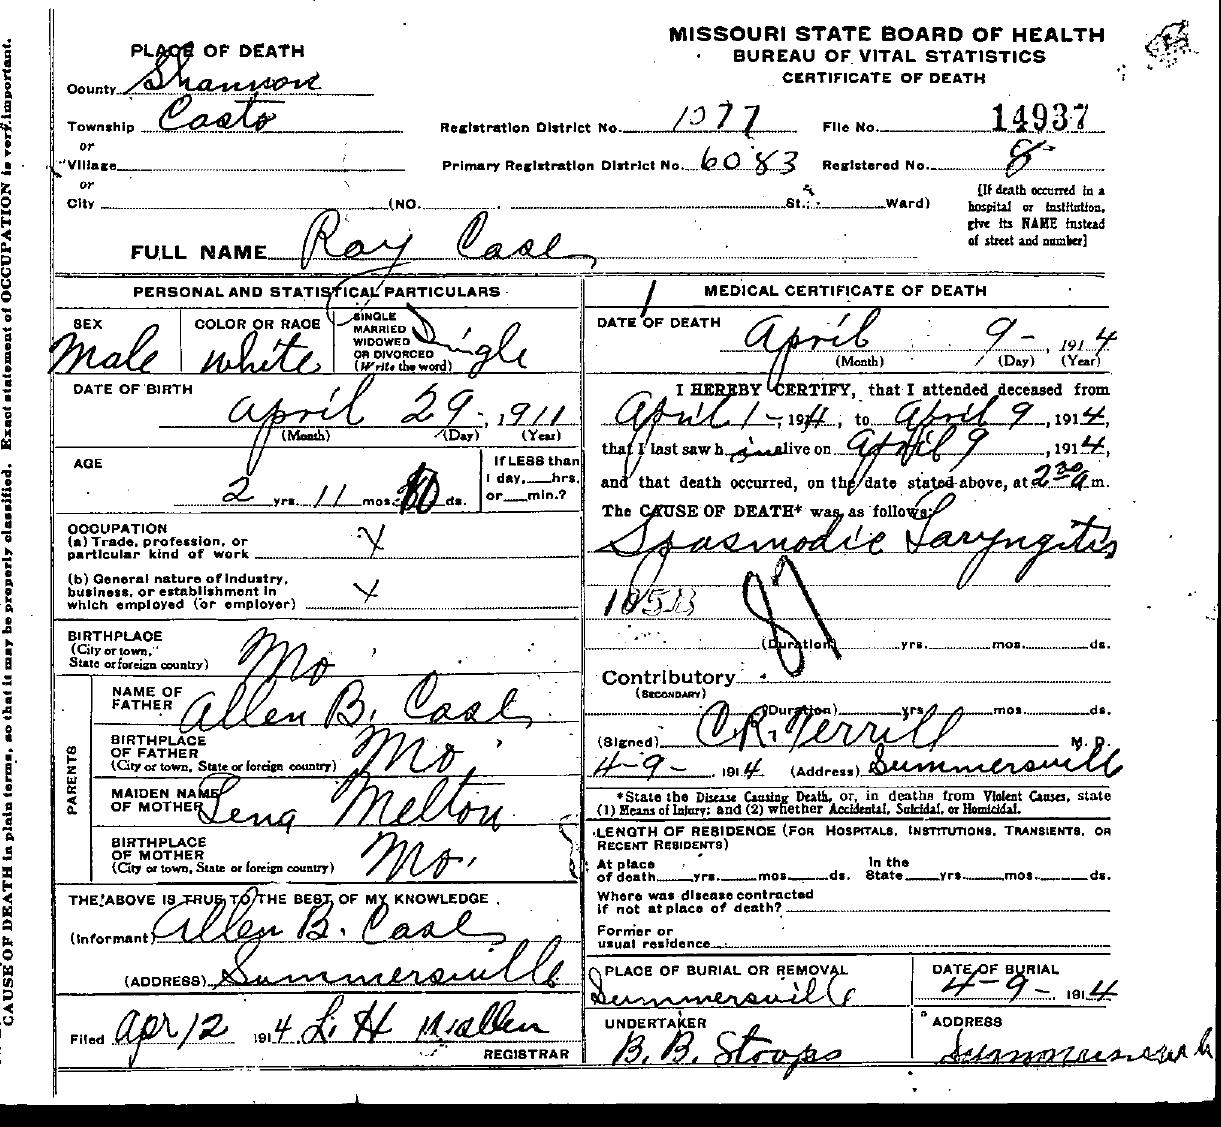 CAUSE OF DEATH in plain terms, so that it may be properly classified. Exact statement of OCCUPATION is very important.
MISSOURI STATE BOARD OF HEALTH
BUREAU OF VITAL STATISTICS
CERTIFICATE OF DEATH
PLACE OF DEATH
County Shannon
Township Casto
or
Village
or
City (NO. St.; Ward)
Registration District No. 1077 File No. 14937
Primary Registration District No. 6083 Registered No. 8
[If death occurred in a
hospital or institution,
give its NAME instead
of street and number]
FULL NAME Ray Case
PERSONAL AND STATISTICAL PARTICULARS
SEX Male
COLOR OR RACE White
SINGLE
MARRIED
WIDOWED
OR DIVORCED
(Write the word) Single
DATE OF BIRTH
April 29, 1911
(Month) (Day) (Year)
AGE
2 yrs. 11 mos. 10 ds.
If LESS than
1 day, hrs.
or min.?
OCCUPATION
(a) Trade, profession, or
particular kind of work X
(b) General nature of industry,
business, or establishment in
which employed (or employer) X
BIRTHPLACE
(City or town,
State or foreign country) Mo
PARENTS
NAME OF
FATHER Allen B. Case
BIRTHPLACE
OF FATHER
(City or town, State or foreign country) Mo.
MAIDEN NAME
OF MOTHER Lena Melton
BIRTHPLACE
OF MOTHER
(City or town, State or foreign country) Mo.
THE ABOVE IS TRUE TO THE BEST OF MY KNOWLEDGE
(Informant) Allen B. Case
(ADDRESS) Summersville
Filed Apr 12 1914 L. H.
REGISTRAR
MEDICAL CERTIFICATE OF DEATH
DATE OF DEATH
April 9- , 1914
(Month) (Day) (Year)
I HEREBY CERTIFY, that I attended deceased from
April 1-, 1914, to April 9, 1914,
that I last saw him alive on April 9, 1914,
and that death occurred, on the date stated above, at 2 30 a m.
The CAUSE OF DEATH* was as follows:
Spasmodic Laryngitis
105B
87
(Duration) yrs. mos. ds.
Contributory
(SECONDARY)
(Duration) yrs. mos. ds.
(Signed) C.R. Terrill M. D.
4-9- 1914 (Address) Summersville
*State the Disease Causing Death, or, in deaths from Violent Causes, state
(1) Means of Injury; and (2) whether Accidental, Suicidal, or Homicidal.
LENGTH OF RESIDENCE (FOR HOSPITALS, INSTITUTIONS, TRANSIENTS, OR
RECENT RESIDENTS)
At place In the
of death yrs. mos. ds. State yrs. mos. ds.
Where was disease contracted
if not at place of death?
Former or
usual residence
PLACE OF BURIAL OR REMOVAL
Summersville
DATE OF BURIAL
4-9- 1914
UNDERTAKER
B. B. Stoops
ADDRESS